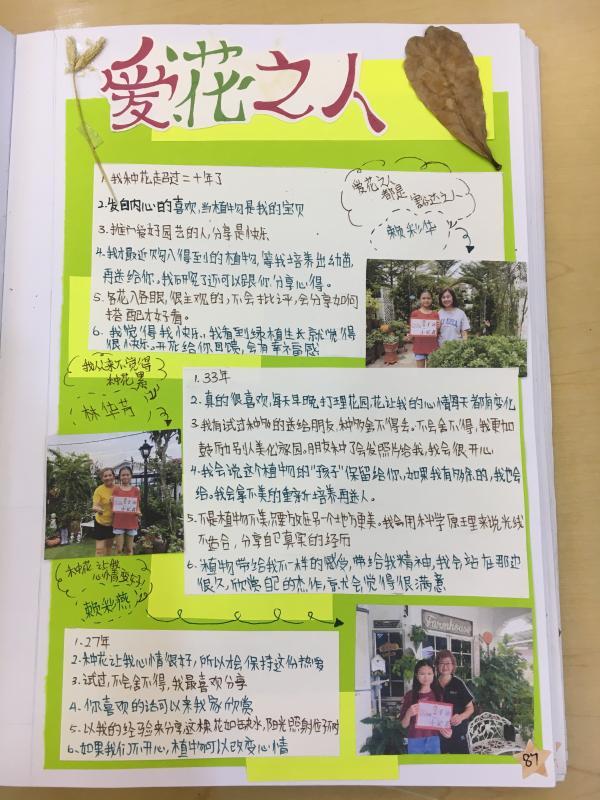 爱花之人
爱花之人
都是
豁达之人
赖彩华
1. 我种花走过二十年了
2. 发自内心的喜欢,当植物是我的宝贝
3. 推广爱好园艺的人,分享是快乐
4. 我才最近购入得到的植物,等我培养出幼苗,
再送给你。我研究了还可以跟你分享心得。
5. 各花入各眼,很主观的,不会批评,会分享如何
搭配才好看。
6. 我觉得我快乐,我看到绿植生长就觉得
很快乐,开花给你回馈,会有幸福感
我从来不觉得
种花累
林华芳
1. 33年
2. 真的很喜欢,每天早晚打理花园,花让我的心情每天都有变化
3. 我有试过种多的送给朋友,种多舍不得丢。不会舍不得,我更加
鼓励别人美化家园。朋友种了会发照片给我,我会很开心
4. 我会说这个植物的“孩子”保留给你,如果我有多余的,我也会
给。我会拿不美的重新培养再送人。
5. 不是植物不美,只要放在另一个地方更美。我会用科学原理来说光线
不适合,分享自己真实的经历
6. 植物带给我不一样的感受,带给我精神,我会站在那边
很久,欣赏自己的杰作,就会觉得很满意
种花让我
心情变好
赖彩燕
1. 27年
2. 种花让我心情很好,所以才会保持这份热爱
3. 试过不会舍不得,我最喜欢分享
4. 你喜欢的话可以来我家欣赏
5. 以我的经验来分享这棵花如何浇水,阳光照射时
6. 如果我们不开心,植物可以改变心情
Farmhouse
87